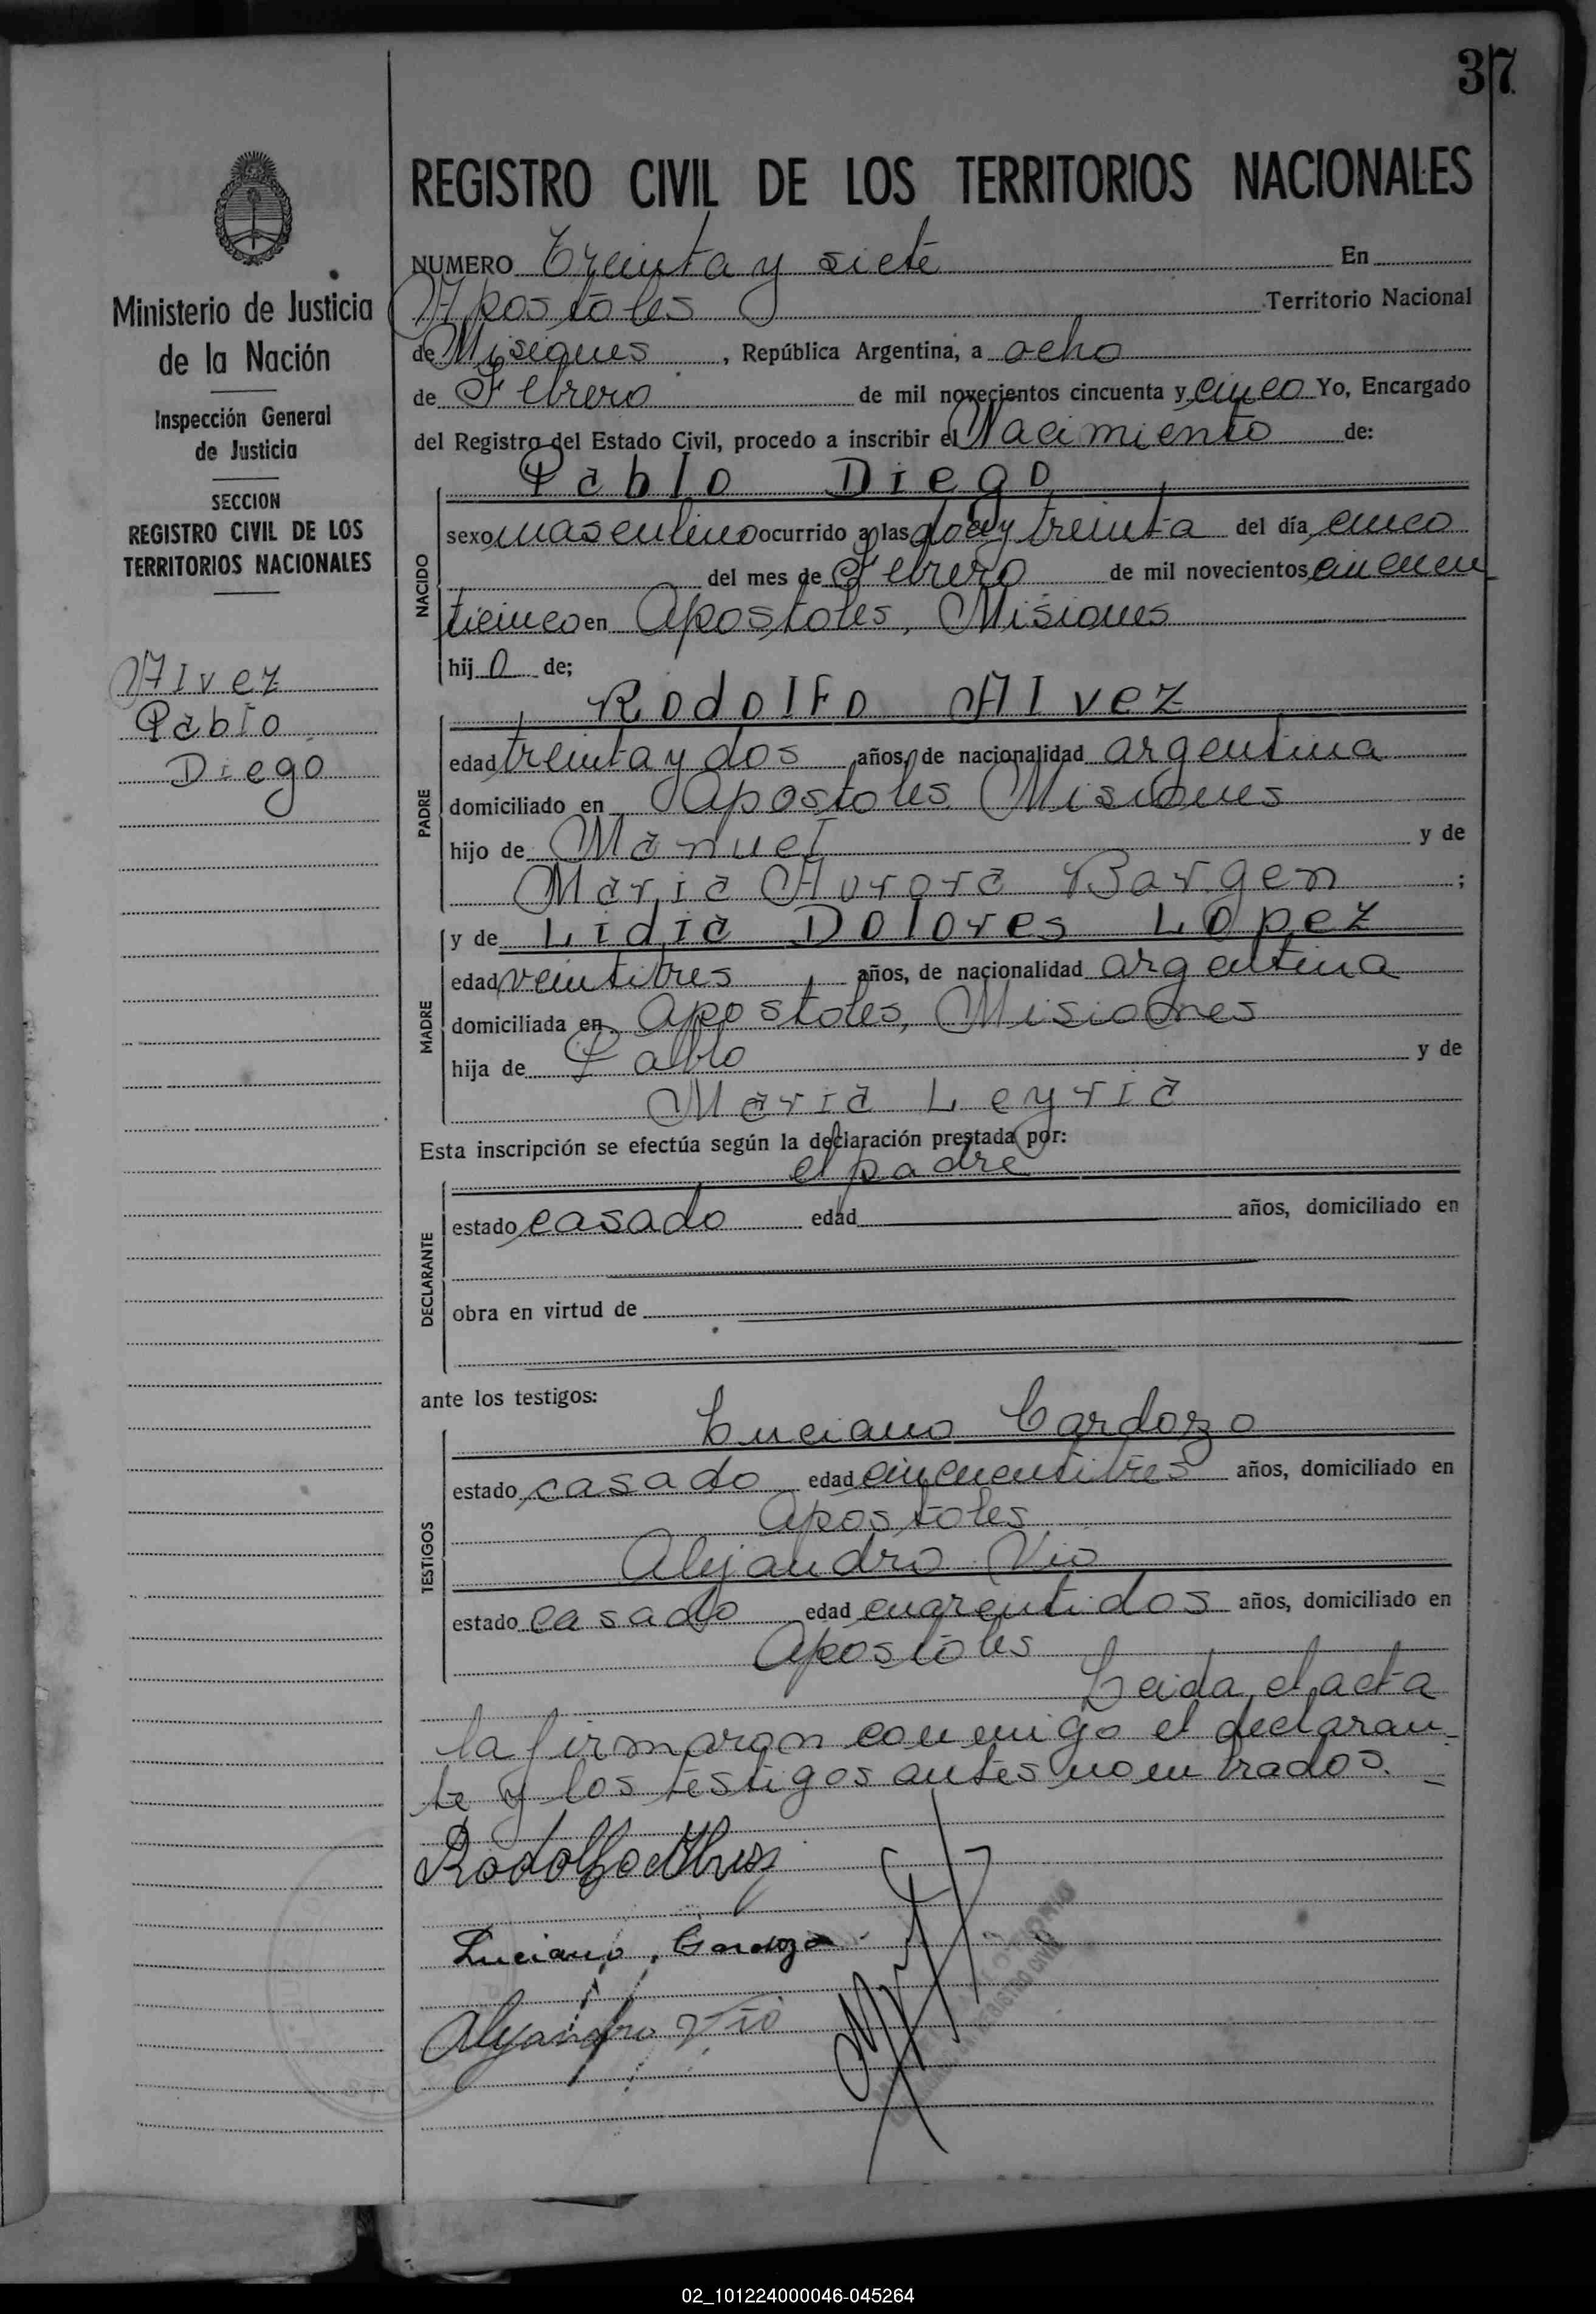 37
REGISTRO CIVIL DE LOS TERRITORIOS NACIONALES
Ministerio de Justicia
de la Nación
Inspección General
de Justicia
SECCION
REGISTRO CIVIL DE LOS
TERRITORIOS NACIONALES
Alvez
Pablo
Diego
NUMERO Treinta y siete En
Apostoles Territorio Nacional
de Misiones, República Argentina, a ocho
de Febrero de mil novecientos cincuenta y cinco Yo, Encargado
del Registro del Estado Civil, procedo a inscribir el Nacimiento de:
Pablo Diego
NACIDO
sexo masculino ocurrido a las doce y treinta del día cinco
del mes de Febrero de mil novecientos cincuen
ticinco en Apostoles, Misiones
hijo de;
Rodolfo Alvez
PADRE
edad treinta y dos años, de nacionalidad argentina
domiciliado en Apostoles Misiones
hijo de Manuel y de
Maria Aurora Bargen ;
y de Lidia Dolores Lopez
MADRE
edad veintitres años, de nacionalidad argentina
domiciliada en Apostoles, Misiones
hija de Pablo y de
Maria Leyria
Esta inscripción se efectúa según la declaración prestada por:
el padre
DECLARANTE
estado casado edad años, domiciliado en
obra en virtud de
ante los testigos:
Luciano Cardozo
TESTIGOS
estado casado edad cincuentitres años, domiciliado en
Apostoles
Alejandro Vio
estado casado edad cuarentidos años, domiciliado en
Apostoles
Leida el acta
la firmaron conmigo el declaran-
te y los testigos antes nombrados. =
Rodolfo Alvez
Luciano Cardozo
Alejandro Vio
02_101224000046-045264